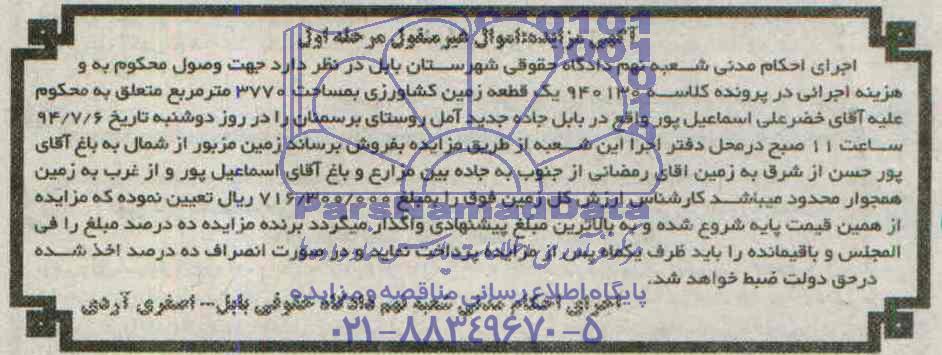 آگهی مزایده:اموال غیر منقول مرحله اول
اجرای احکام مدنی شعبه نهم دادگاه حقوقی شهرستان بابل در نظر دارد جهت وصول محکوم به و
هزینه اجرائی در پرونده کلاسه ۹۴۰۱۳۰ یک قطعه زمین کشاورزی بمساحت ۳۷۷۰ مترمربع متعلق به محکوم
علیه آقای خضرعلی اسماعیل پور واقع در بابل جاده جدید آمل روستای برسمنان را در روز دوشنبه تاریخ ۹۴/۷/۶
ساعت ۱۱ صبح درمحل دفتر اجرا این شعبه از طریق مزایده بفروش برساند زمین مزبور از شمال به باغ آقای
پور حسن از شرق به زمین اقای رمضانی از جنوب به جاده بین مزارع و باغ آقای اسماعیل پور و از غرب به زمین
همجوار محدود میباشد کارشناس ارزش کل زمین فوق را بمبلغ ۷۱۶/۳۰۰/۰۰۰ ریال تعیین نموده که مزایده
از همین قیمت پایه شروع شده و به بالاترین مبلغ پیشنهادی واگذار میگردد برنده مزایده ده درصد مبلغ را فی
المجلس و باقیمانده را باید ظرف یکماه پس از مزایده پرداخت نماید و در صورت انصراف ده درصد اخذ شده
درحق دولت ضبط خواهد شد.
اجرای احکام مدنی شعبه نهم دادگاه حقوقی بابل-- اصغری آردی
ParsNamadData
پایگاه اطلاع رسانی مناقصه و مزایده
۰۲۱-۸۸۳۴۹۶۷۰-۵